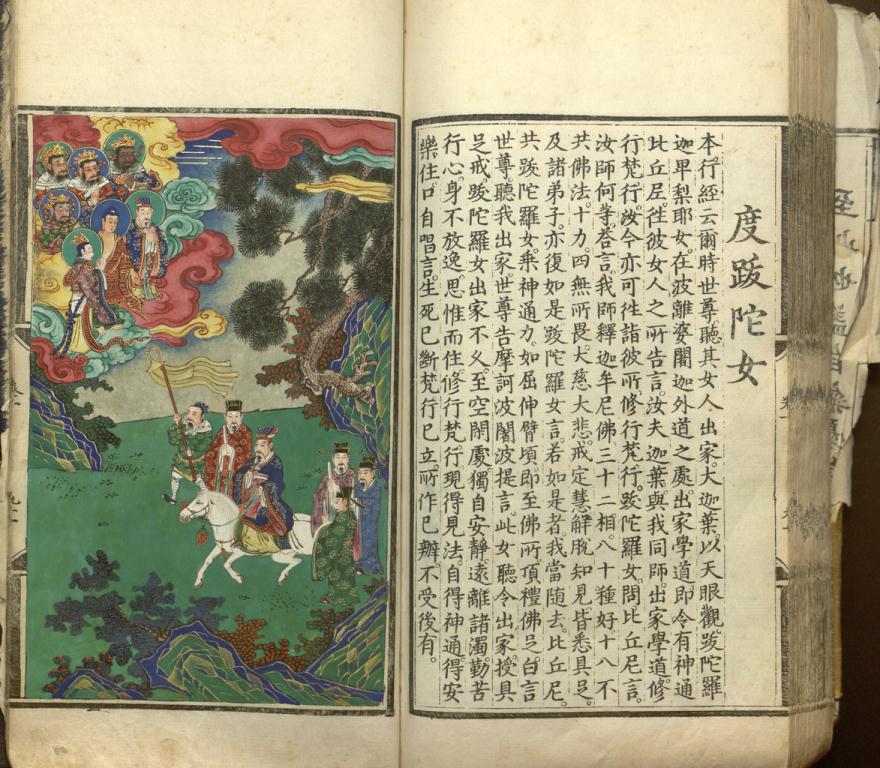 度跋陀女
本行經云爾時世尊聽其女人出家大迦葉以天眼觀跋陀羅
迦卑梨耶女。在波離婆闍迦外道之處出家學道即令有神通
比丘尼。往彼女人之所告言。汝夫迦葉與我同師。出家學道。修
行梵行。汝今亦可往詣彼所修行梵行。跋陀羅女。問比丘尼言。
汝師何等。荅言。我師釋迦牟尼佛三十二相。八十種好十八不
共佛法。十力。四無所畏大慈大悲。戒定慧解脫知見。皆悉具足。
及諸弟子。亦復如是。跋陀羅女言。若如是者。我當隨去。比丘尼。
共跋陀羅女。乘神通力。如屈伸臂頃。即至佛所。頂禮佛足白言
世尊聽我出家世尊告摩訶波闍波提言。此女聽令出家。授具
足戒。跋陀羅女出家不久。至空閑處。獨自安靜。遠離諸濁。勤苦
行心。身不放逸。思惟而住。修行梵行。現得見法。自得神通。得安
樂住。口自唱言。生死已斷。梵行已立。所作已辦。不受後有。